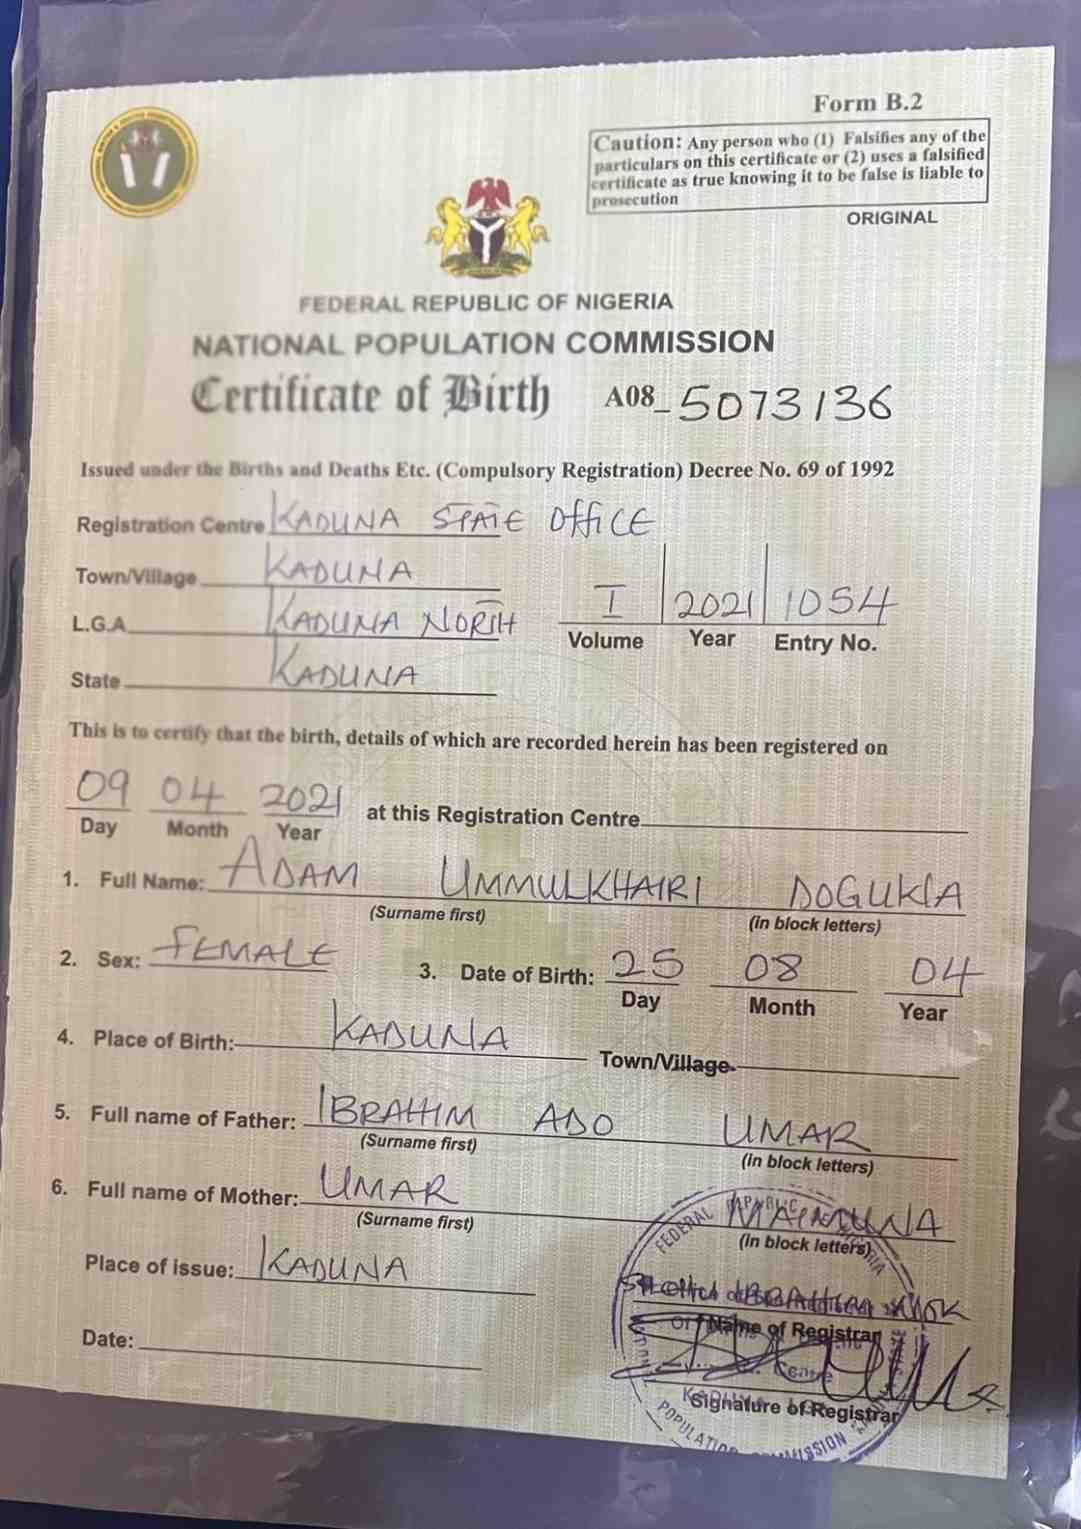 Form B.2
Caution: Any person who (1) Falsifies any of the
particulars on this certificate or (2) uses a falsified
certificate as true knowing it to be false is liable to
prosecution
ORIGINAL
FEDERAL REPUBLIC OF NIGERIA
NATIONAL POPULATION COMMISSION
Certificate of Birth A08_5073136
Issued under the Births and Deaths Etc. (Compulsory Registration) Decree No. 69 of 1992
Registration Centre KADUNA STATE OFFICE
Town/Village KADUNA
L.G.A KADUNA NORTH
I 2021 1054
Volume Year Entry No.
State KADUNA
This is to certify that the birth, details of which are recorded herein has been registered on
09 04 2021 at this Registration Centre
Day Month Year
1. Full Name: ADAM UMMULKHAIRI DOGUKIA
(Surname first) (in block letters)
2. Sex: FEMALE 3. Date of Birth: 25 08 04
Day Month Year
4. Place of Birth: KADUNA Town/Village
5. Full name of Father: IBRAHIM ADO UMAR
(Surname first) (in block letters)
6. Full name of Mother: UMAR MAIMUNA
(Surname first) (in block letters)
Place of issue: KADUNA
IBRAHIM
Name of Registrar
Date:
Centre
Signature of Registrar
FEDERAL
POPULATION COMMISSION